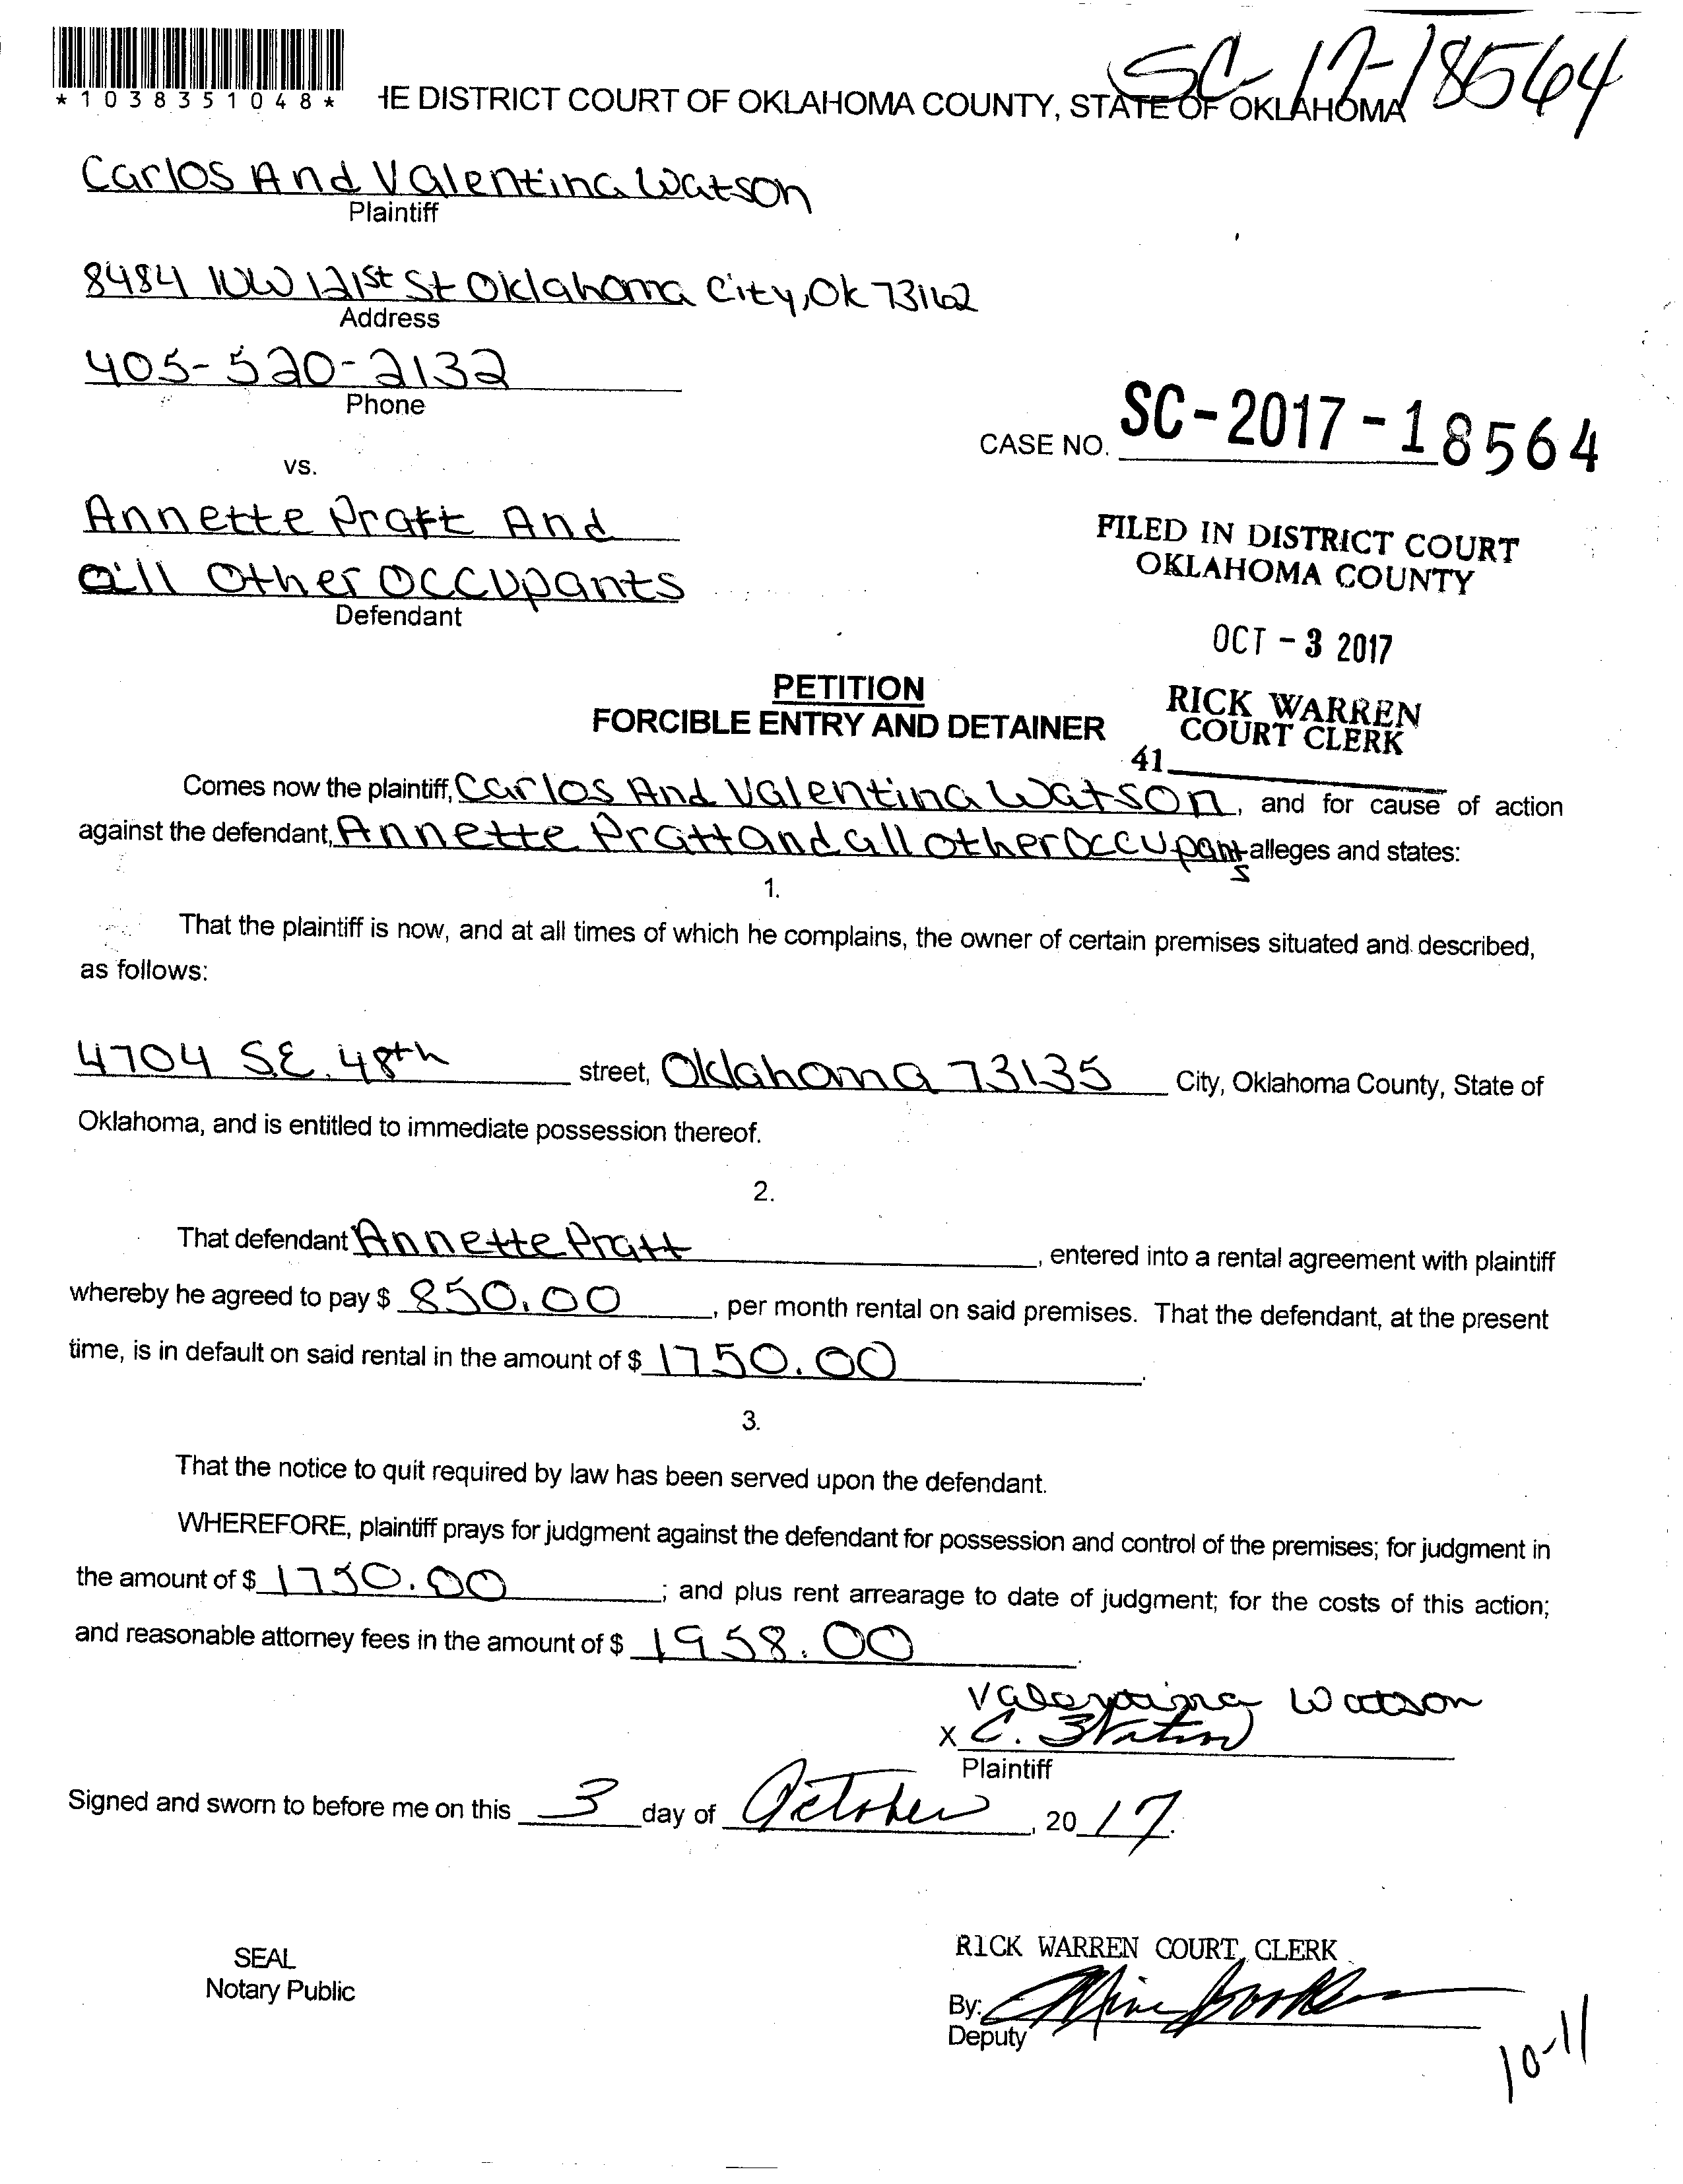 SC-17-18564
*1038351048*
HE DISTRICT COURT OF OKLAHOMA COUNTY, STATE OF OKLAHOMA
Carlos And Valentina Watson
Plaintiff
8484 NW 121st St Oklahoma City, Ok 73162
Address
405-520-2132
Phone
CASE NO. SC-2017-18564
vs.
Annette Pratt And
all Other Occupants
Defendant
FILED IN DISTRICT COURT
OKLAHOMA COUNTY
OCT - 3 2017
RICK WARREN
COURT CLERK
41
PETITION
FORCIBLE ENTRY AND DETAINER
Comes now the plaintiff, Carlos And Valentina Watson, and for cause of action
against the defendant, Annette Pratt and all other Occupants alleges and states:
1.
That the plaintiff is now, and at all times of which he complains, the owner of certain premises situated and described,
as follows:
4704 S.E. 48th street, Oklahoma 73135 City, Oklahoma County, State of
Oklahoma, and is entitled to immediate possession thereof.
2.
That defendant Annette Pratt, entered into a rental agreement with plaintiff
whereby he agreed to pay $ 850.00, per month rental on said premises. That the defendant, at the present
time, is in default on said rental in the amount of $ 1750.00.
3.
That the notice to quit required by law has been served upon the defendant.
WHEREFORE, plaintiff prays for judgment against the defendant for possession and control of the premises; for judgment in
the amount of $ 1750.00; and plus rent arrearage to date of judgment; for the costs of this action;
and reasonable attorney fees in the amount of $ 1958.00.
Valentina Watson
X C.
Plaintiff
Signed and sworn to before me on this 3 day of October, 2017.
SEAL
Notary Public
RICK WARREN COURT CLERK
By:
Deputy
10-11